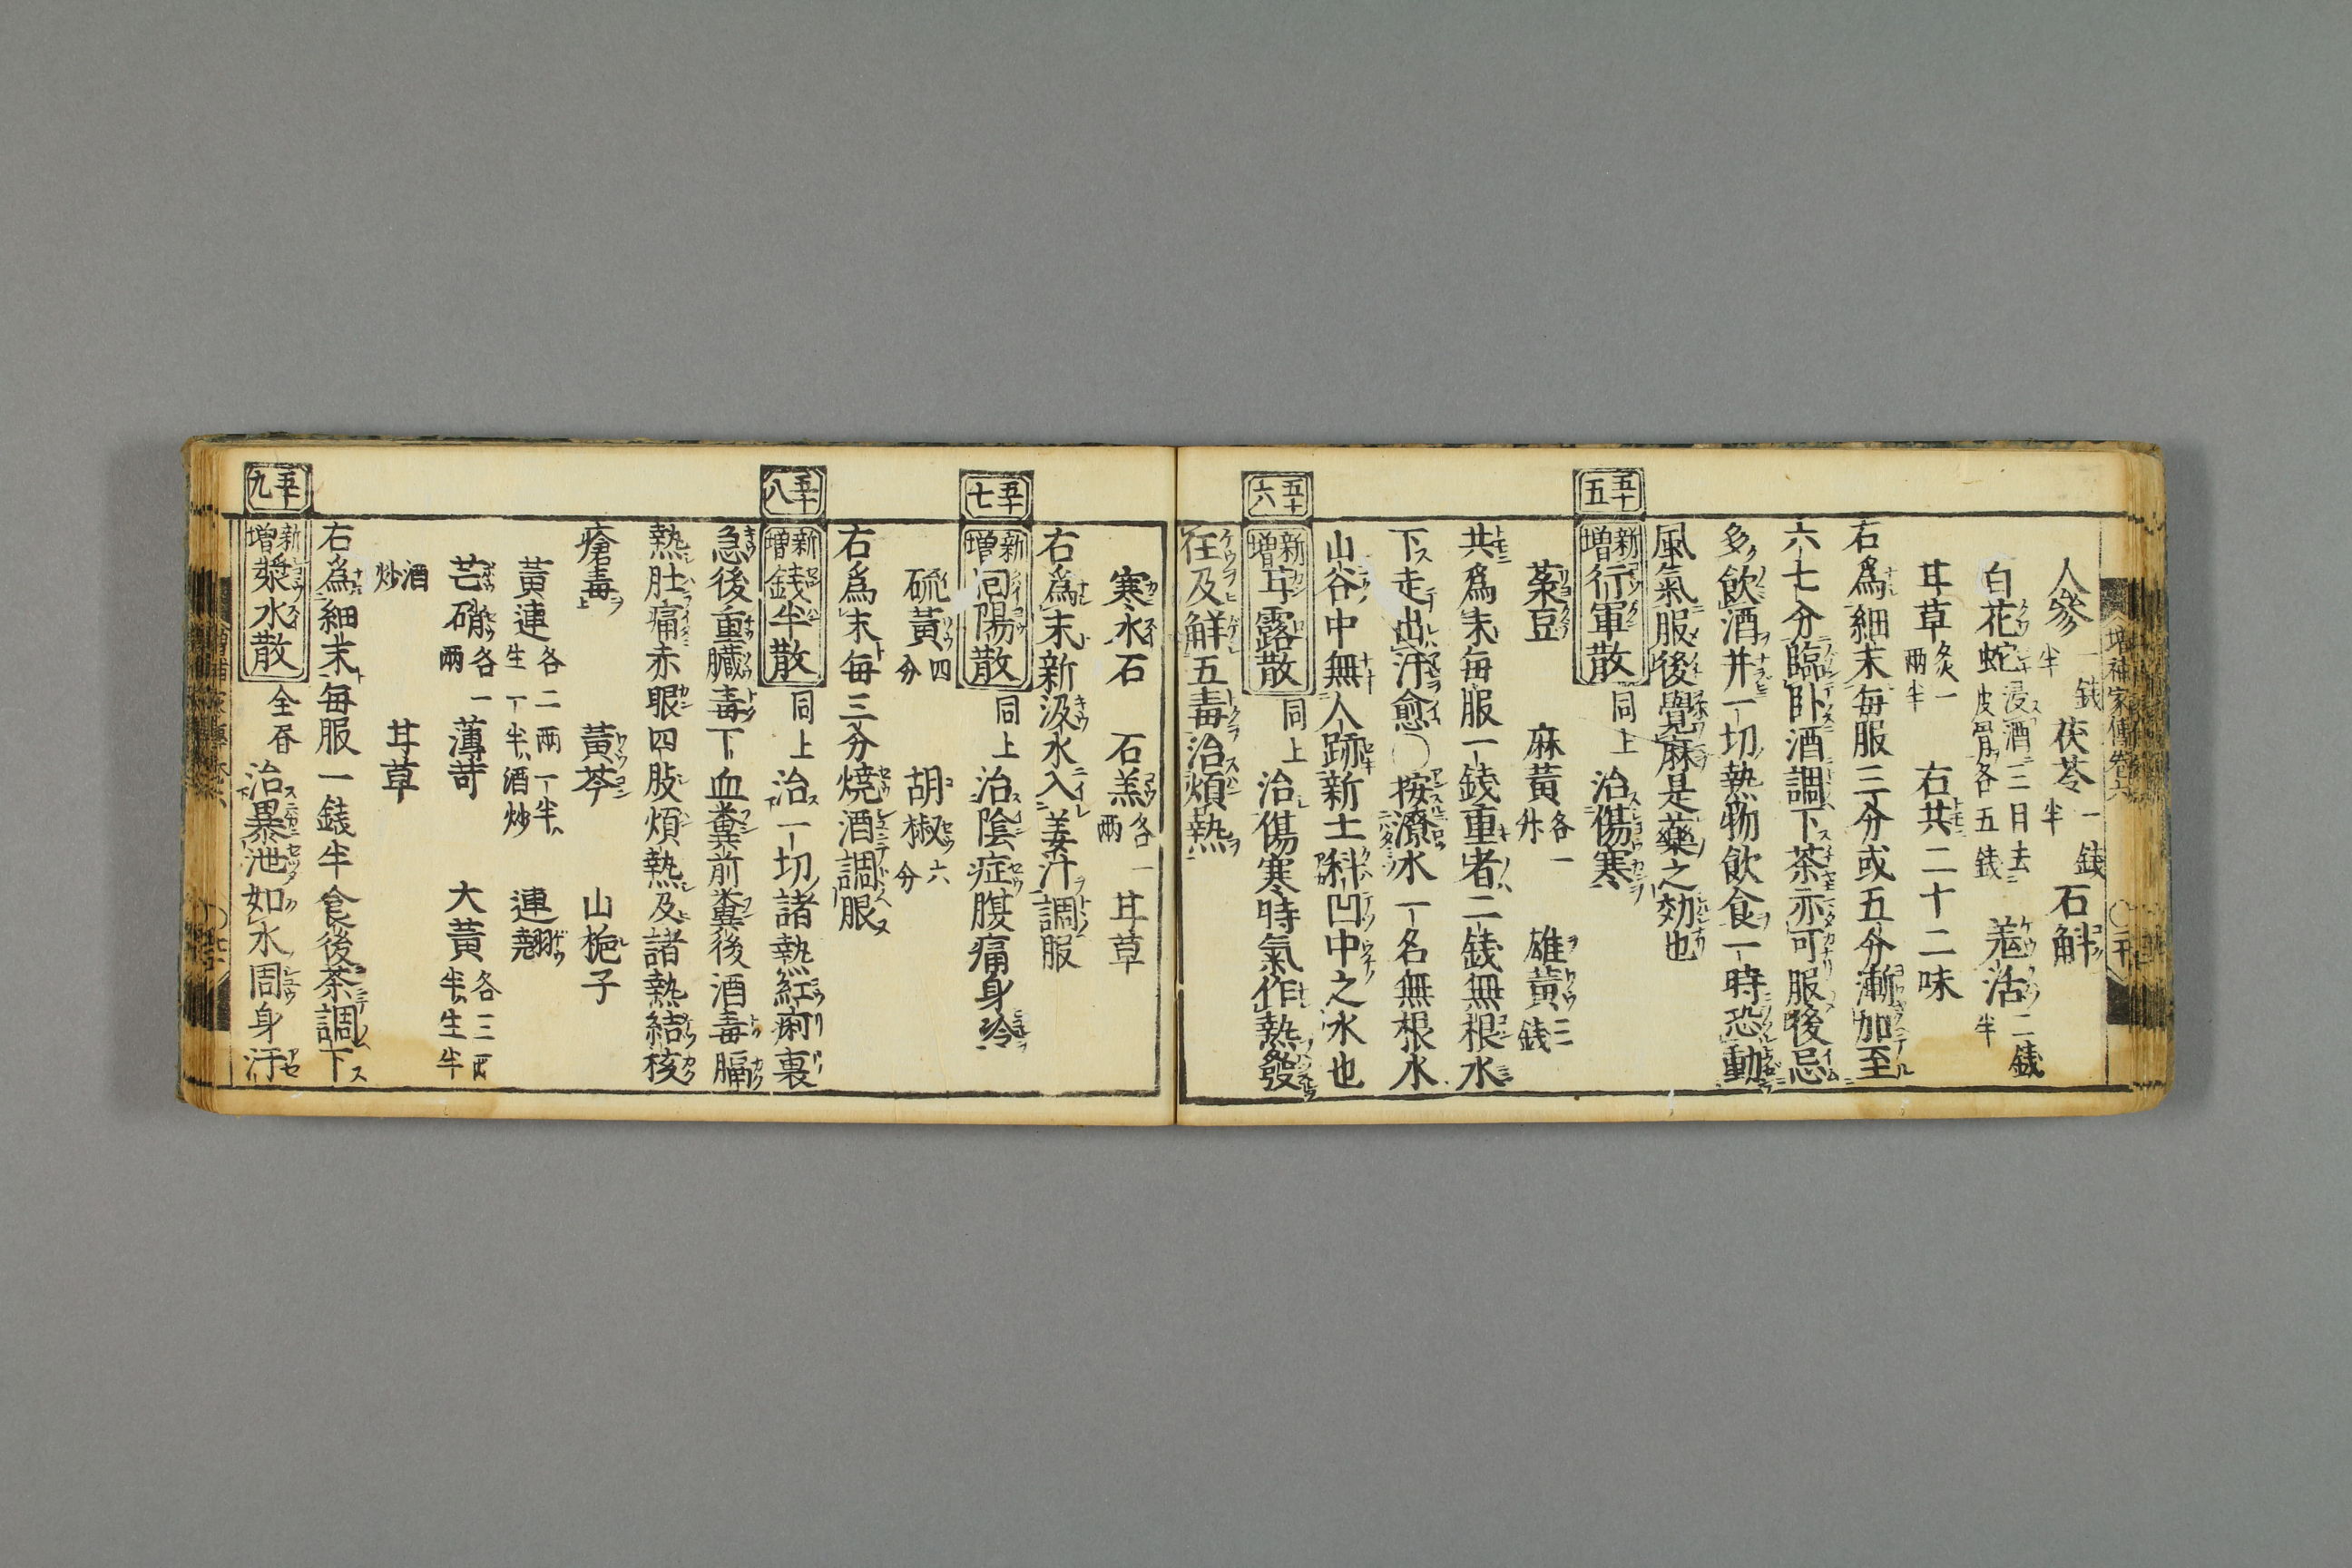 増補神家傳卷六
人參一錢半 茯苓一錢半 石斛
白花蛇浸酒三日去皮骨各五錢 羗活二錢半
甘草炙一兩半 右共二十二味
右爲細末毎服三分或五分漸加至
六七分臨卧酒調下茶亦可服後忌
多飲酒并一切熱物飲食一時恐動
風氣服後覺麻是藥之効也
五十五 新増 行軍散 同上 治傷寒
菉豆 麻黃各一升 雄黃三錢
共爲末毎服一錢重者二錢無根水
下走出汗愈〇按潦水一名無根水
山谷中無人跡新土科凹中之水也
五十六 新増 甘露散 同上 治傷寒時氣作熱發
狂及解五毒治煩熱
寒水石 石羔各一兩 甘草
右爲末新汲水入姜汁調服
五十七 新増 囘陽散 同上 治陰症腹痛身冷
硫黃四分 胡椒六分
右爲末毎三分燒酒調服
五十八 新増 錢半散 同上 治一切諸熱紅痢裏
急後重臓毒下血糞前糞後酒毒膈
熱肚痛赤眼四肢煩熱及諸熱結核
瘡毒 黃芩 山梔子
黃連各二兩一半生一半酒炒 連翹
芒硝各一兩 薄苛 大黃各三兩半生半
酒炒 甘草
右爲細末毎服一錢半食後茶調下
五十九 新増 漿水散 全春 治暴泄如水周身汗